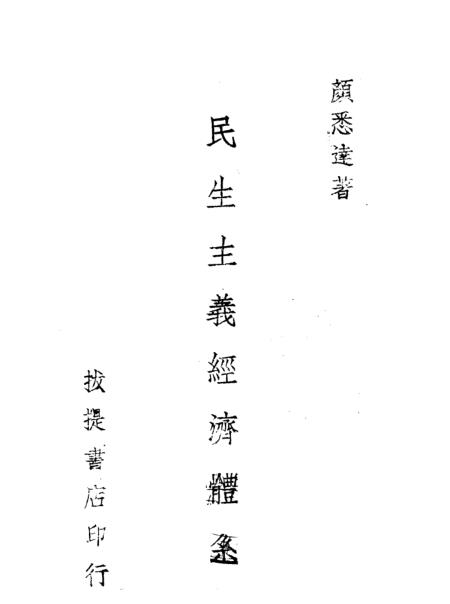 顏悉達著
民生主義經濟體系
拔提書店印行